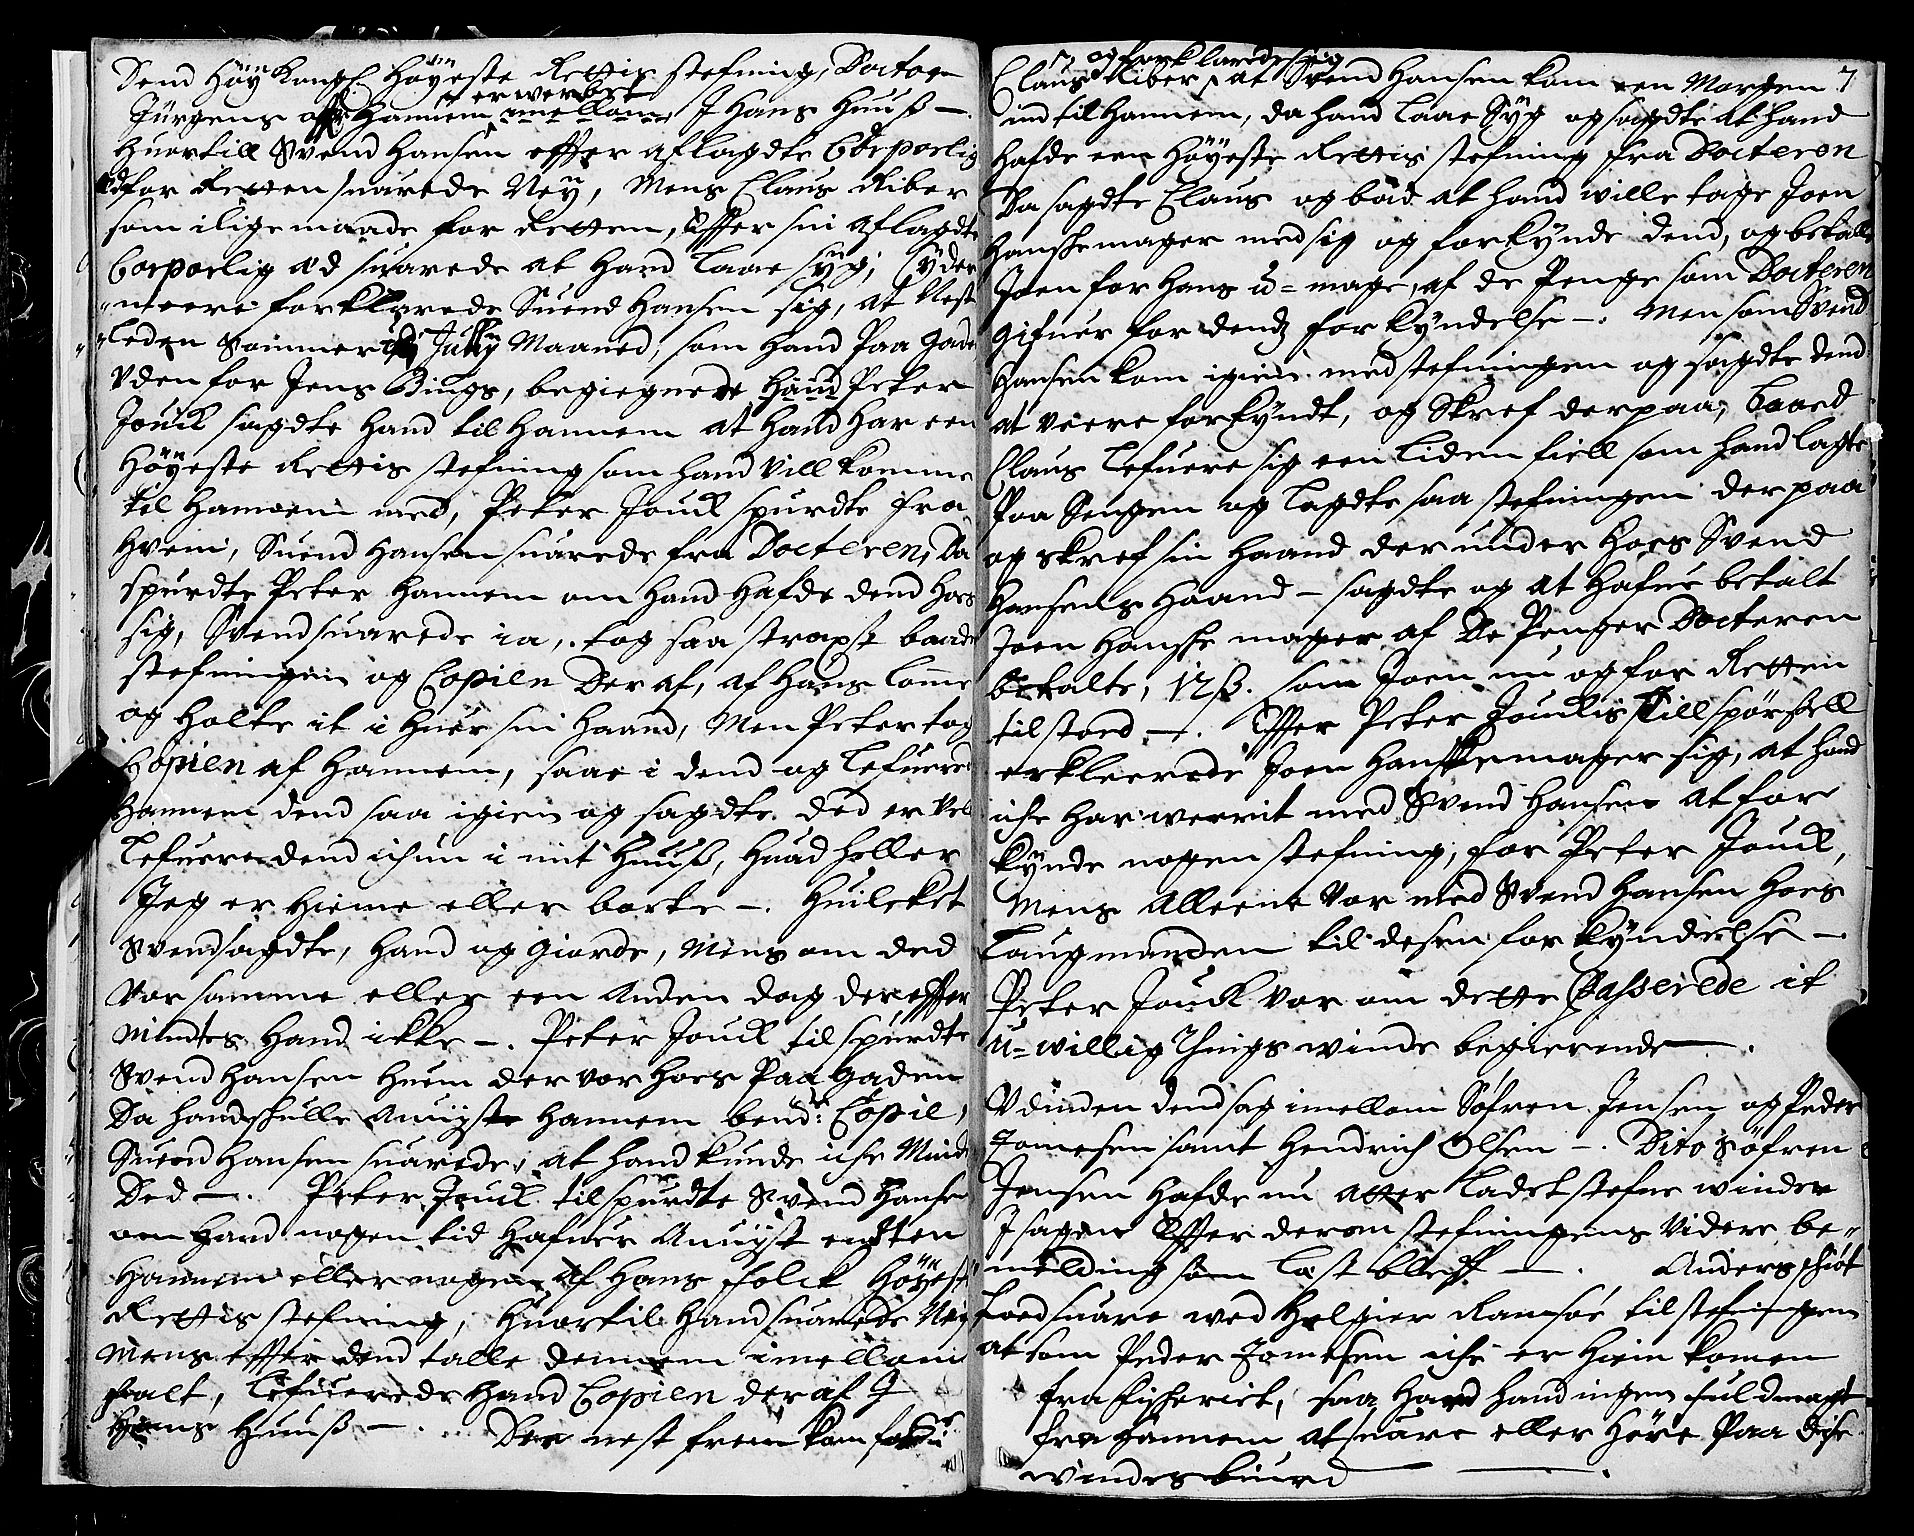 Dend Høy Kongl Høyeste Rettis stefning, Doctor
Jürgens offr Hannem erwerbet imellom, J Hans Huuß –
Huortill Svend Hansen effter aflagdte Corporlig
Ed for Retten suarede Ney, Mens Claus Riber
som ilige maade for Retten, Effter sin aflagdte
Corporlig æd suarede at Hand laae syg, Ÿder
meere forklarede Suend Hansen sig, at Nest
leden Sommer i July Maaned, som Hand Paa gade
Vden for Jens Bings, begiegnede Hand Peter
Jouck sagdte Hand til Hannem at Hand Har een
Høyeste Rettis stefning som hand vill komme
til Hannem med, Peter Jouck spurdte fra
Hvem, Suend Hansen suarede fra Docteren, Da
spurdte Peter Hannem om Hand Hafde dend Hos
sig, Svend suarede ia, tog saa strapst baade
stefningen og Copien Der af, af Hans Lomme
og Holte it i Huer sin Haand, Men Peter tog
Copien af Hannem, saae i dend og lefuerede
Hannem dend saa igien og sagdte, Ded er vel
lefuere dend ichun i mit Huuß, Huad heller
Jeg er Hieme eller borte –. Huilcket
Svend sagdte, Hand og giorde, Mens om ded
Var samme eller een Anden dag der effter
mindtes Hand ikke –. Peter Jouck til spurdte
Svend Hansen Huem der var Hoes Paa gaden
Da hand skulle Anuyste Hannem bende: Copie,
Suend Hansen suarede, at hand kunde iche Minde
Ded –. Peter Jouck til spurdte Svend Hansen
om Hand nogen tid Hafuer Anuyst enten
Hannem eller nogen af Hans Folck Høyeste
Rettis stefning, Huortil Hand suarede Ney
Mens effter dend talle dennem imellom
falt, lefuerede Hand Copien der af J
Hans Huuß –. Der nest frem kom for
7
Claus Riber, og forklarede sig at Svend Hansen kom een Morgen
ind til Hannem, da hand laae Syg og sagdte at hand
Hafde een Høyeste Rettis stefning fra Docteren
Da sagdte Claus og bad at hand wille tage Joen
Hanskemager med sig og forkynde dend, og betalle
Joen for Hans u=mage, af de Penge som Docteren
gifuer for dends forkyndelse –. Men som Svend
Hansen kom igien med stefningen og sagdte dend
at veere forkyndt, og Skref derpaa, baed
Claus lefuere sig een liden fiell som hand lagte
Paa Sengen og lagdte saa stefningen der paa
og skref sin Haand der under Hoes Svend
Hansens Haand – sagdte og at Hafue betalt
Joen Hanske mager af De Penger Docteren
betalte, 12ß. som Joen nu og for Retten
tilstoed –. Effter Peter Joucks Till spørßell
erkleerede Joen Hanskemager sig, at hand
iche Har werrit med Svend Hansen at for
kynde nogen stefning, for Peter Jouck,
Mens Alleene var med Svend Hansen Hoes
Laugmanden til desen forkyndelse –
Peter Jouck var om dette Passerede it
u=willig Things winde begierende –.
Vdinden dend sag imellom Søfren Jensen og Peder
Jomesen samt Hendrich Olsen –. Dito Søfren
Jensen Hafde nu atter ladet stefne winder
J sagen Effter derom stefningens Videre be-
melding som læst bleff –. Anders
loed suare wed Helgier Ramsøe til stefningen
at som Peder Jomesen iche er Hiem komen
fra fischeriet, saa Hard hand ingen fuldmagt
fra Hannem at suare eller Høre Paa disse
windes biurd –.